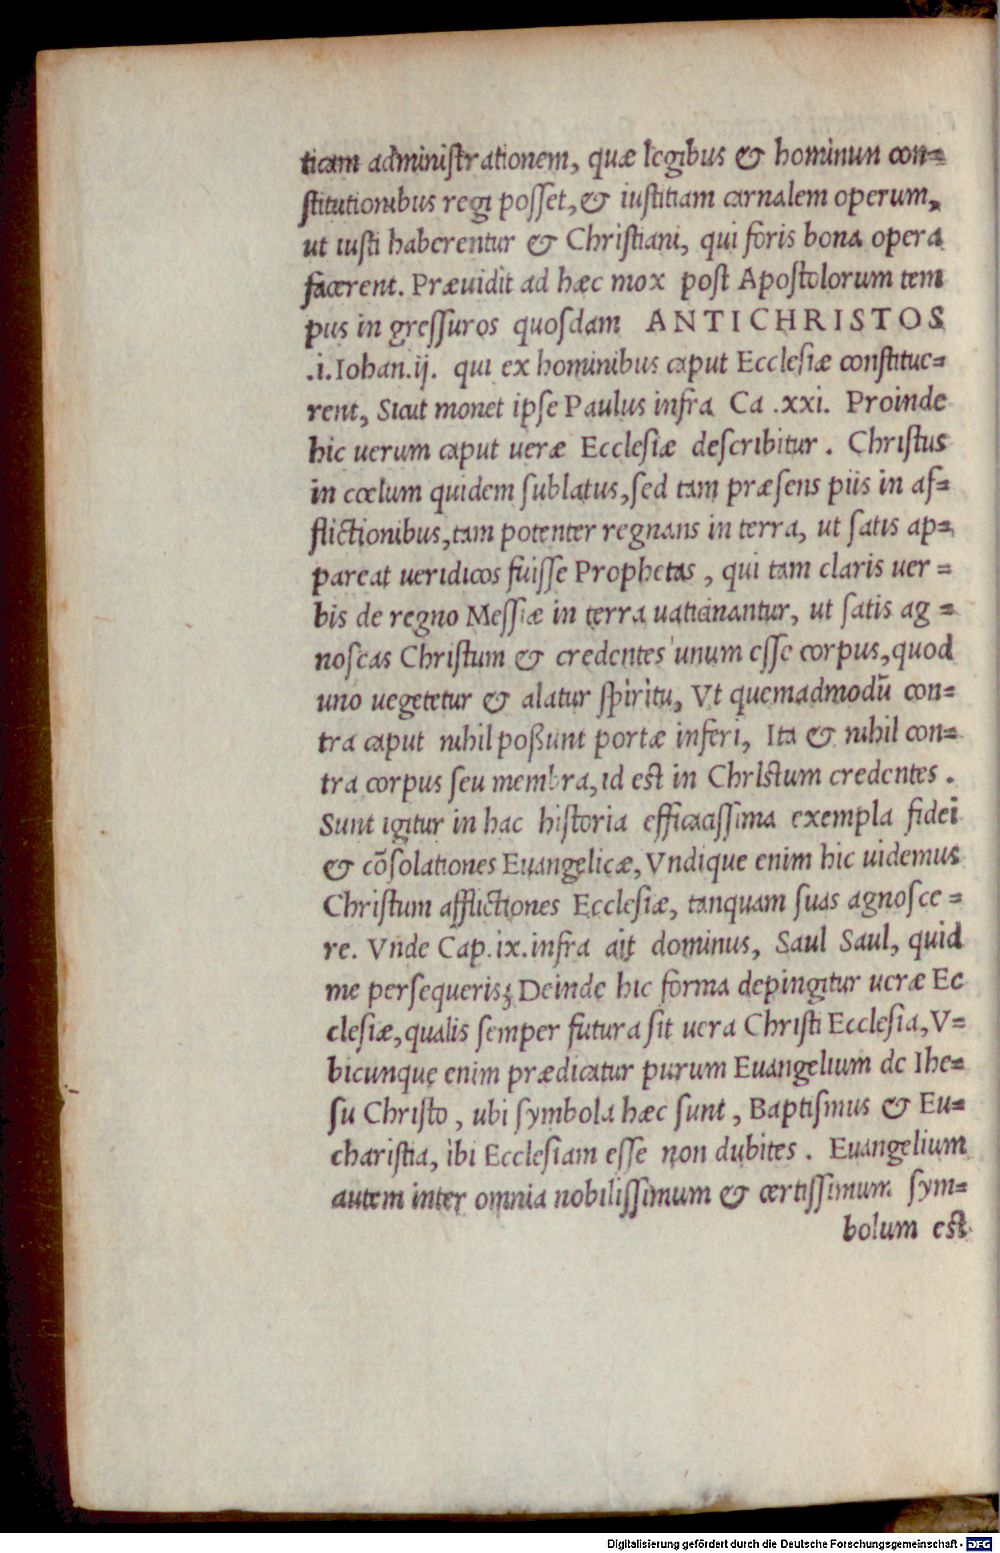 ticam administrationem, quæ legibus & hominun con=
stitutionibus regi posset, & iustitiam carnalem operum,
ut iusti haberentur & Christiani, qui foris bona opera
facerent. Præuidit ad hæc mox post Apostolorum tem
pus in gressuros quosdam ANTICHRISTOS
.i.Iohan.ij. qui ex hominibus caput Ecclesiæ constitue=
rent, Sicut monet ipse Paulus infra Ca .xxi. Proinde
hic uerum caput ueræ Ecclesiæ describitur . Christus
in cœlum quidem sublatus, sed tam præsens piis in af=
flictionibus, tam potenter regnans in terra, ut satis ap=
pareat ueridicos fuisse Prophetas , qui tam claris uer =
bis de regno Messiæ in terra uaticinantur, ut satis ag =
noscas Christum & credentes unum esse corpus, quod
uno uegetetur & alatur spiritu, Vt quemadmodū con=
tra caput nihil poßunt portæ inferi, Ita & nihil con=
tra corpus seu membra, id est in ChrIstum credentes .
Sunt igitur in hac historia efficacissima exempla fidei
& cōsolationes Euangelicæ, Vndique enim hic uidemus
Christum afflictiones Ecclesiæ, tanquam suas agnosce =
re. Vnde Cap.ix.infra ait dominus, Saul Saul, quid
me persequeris? Deinde hic forma depingitur ueræ Ec
clesiæ, qualis semper futura sit uera Christi Ecclesia, V=
bicunque enim prædicatur purum Euangelium de Ihe=
su Christo , ubi symbola hæc sunt , Baptismus & Eu=
charistia, ibi Ecclesiam esse non dubites . Euangelium
autem inter omnia nobilissimum & certissimum sym=
bolum est
Digitalisierung gefördert durch die Deutsche Forschungsgemeinschaft - DFG